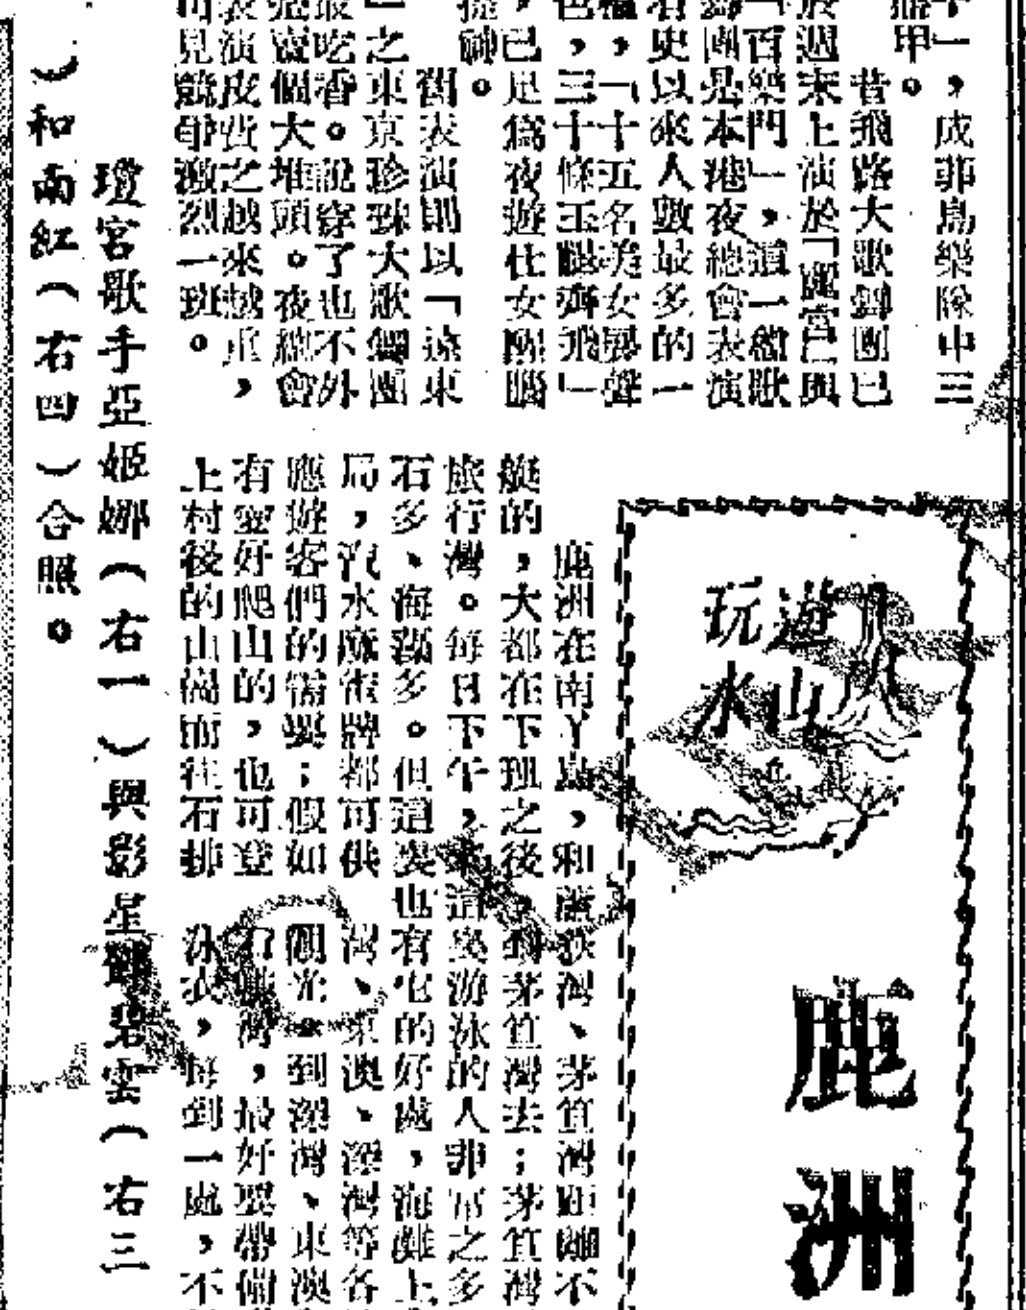 一,成菲島樂隊中三
甲。
昔飛路大歌舞團已
於週末上演於「麗宮」與
「百樂門」,這一艘歌
舞團是本港夜總會表演
有史以來人數最多的一
檔,「十五名美女展聲
色,三十條玉腿齊飛」
,已足為夜遊仕女醒腦
提神。
舊表演則以「遠東
」之東京珍珠大歌舞團
最吃香。說穿了也不外
賣個大堆頭。夜總會
表演皮費之越來越重,
可見競爭激烈一班。
瓊宮歌手亞姬娜(右一)與影星鄧碧雲(右三
)和南紅(右四)合照。
遊山
玩水
鹿洲
鹿洲在南丫島,和蘆荻灣、茅笪灣距離不
艇的,大都在下班之後,到茅笪灣去;茅笪灣
旅行灣。每日下午,來這裏游泳的人非常之多
石多、海藻多。但這裏也有它的好處,海灘上
局,汽水牌都可供
應遊客們的需要;假如
有靈好爬山的,也可登
上村後的山崗而往石排
灣、東澳、深灣等各
觀光。到深灣、東澳
石排灣,最好要帶備
泳衣,每到一處,不